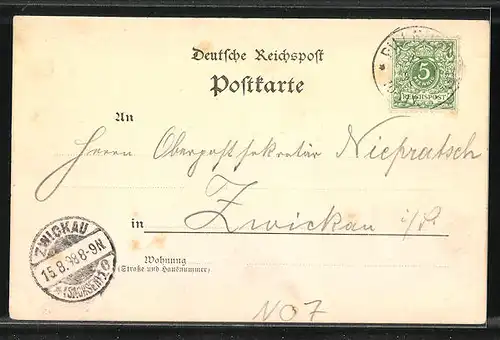 Deutsche Reichspost
Postkarte
5
REICHSPOST
An
Herrn Oberpostsekretär Niepratsch
in Zwickau i/S.
Wohnung
(Straße und Hausnummer)
ZWICKAU
15.8.98 8-9N
(SACHSEN)
NO7